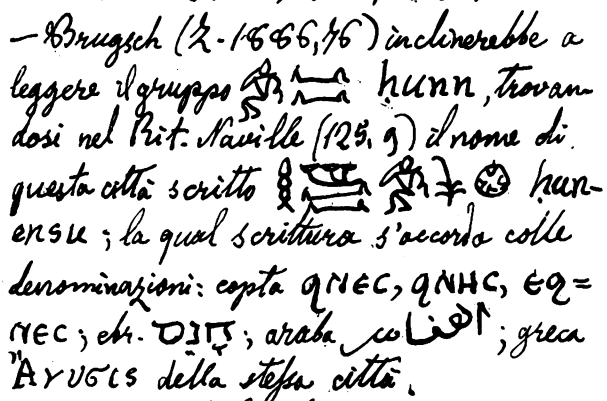 — Brugsch (Z. 1886,76) inclinerebbe a
leggere il gruppo ḥunn, trovan-
dosi nel Rit. Naville (125,9) il nome di
questa città scritto ḥun-
ensu ; la qual scrittura s'accorda colle
denominazioni: copta ϩⲛⲉⲥ, ϩⲛⲏⲥ, ⲉϩ=
ⲛⲉⲥ ; ebr. חָנֵס ; araba اهناس ; greca
Ἄνυσις della stessa città.